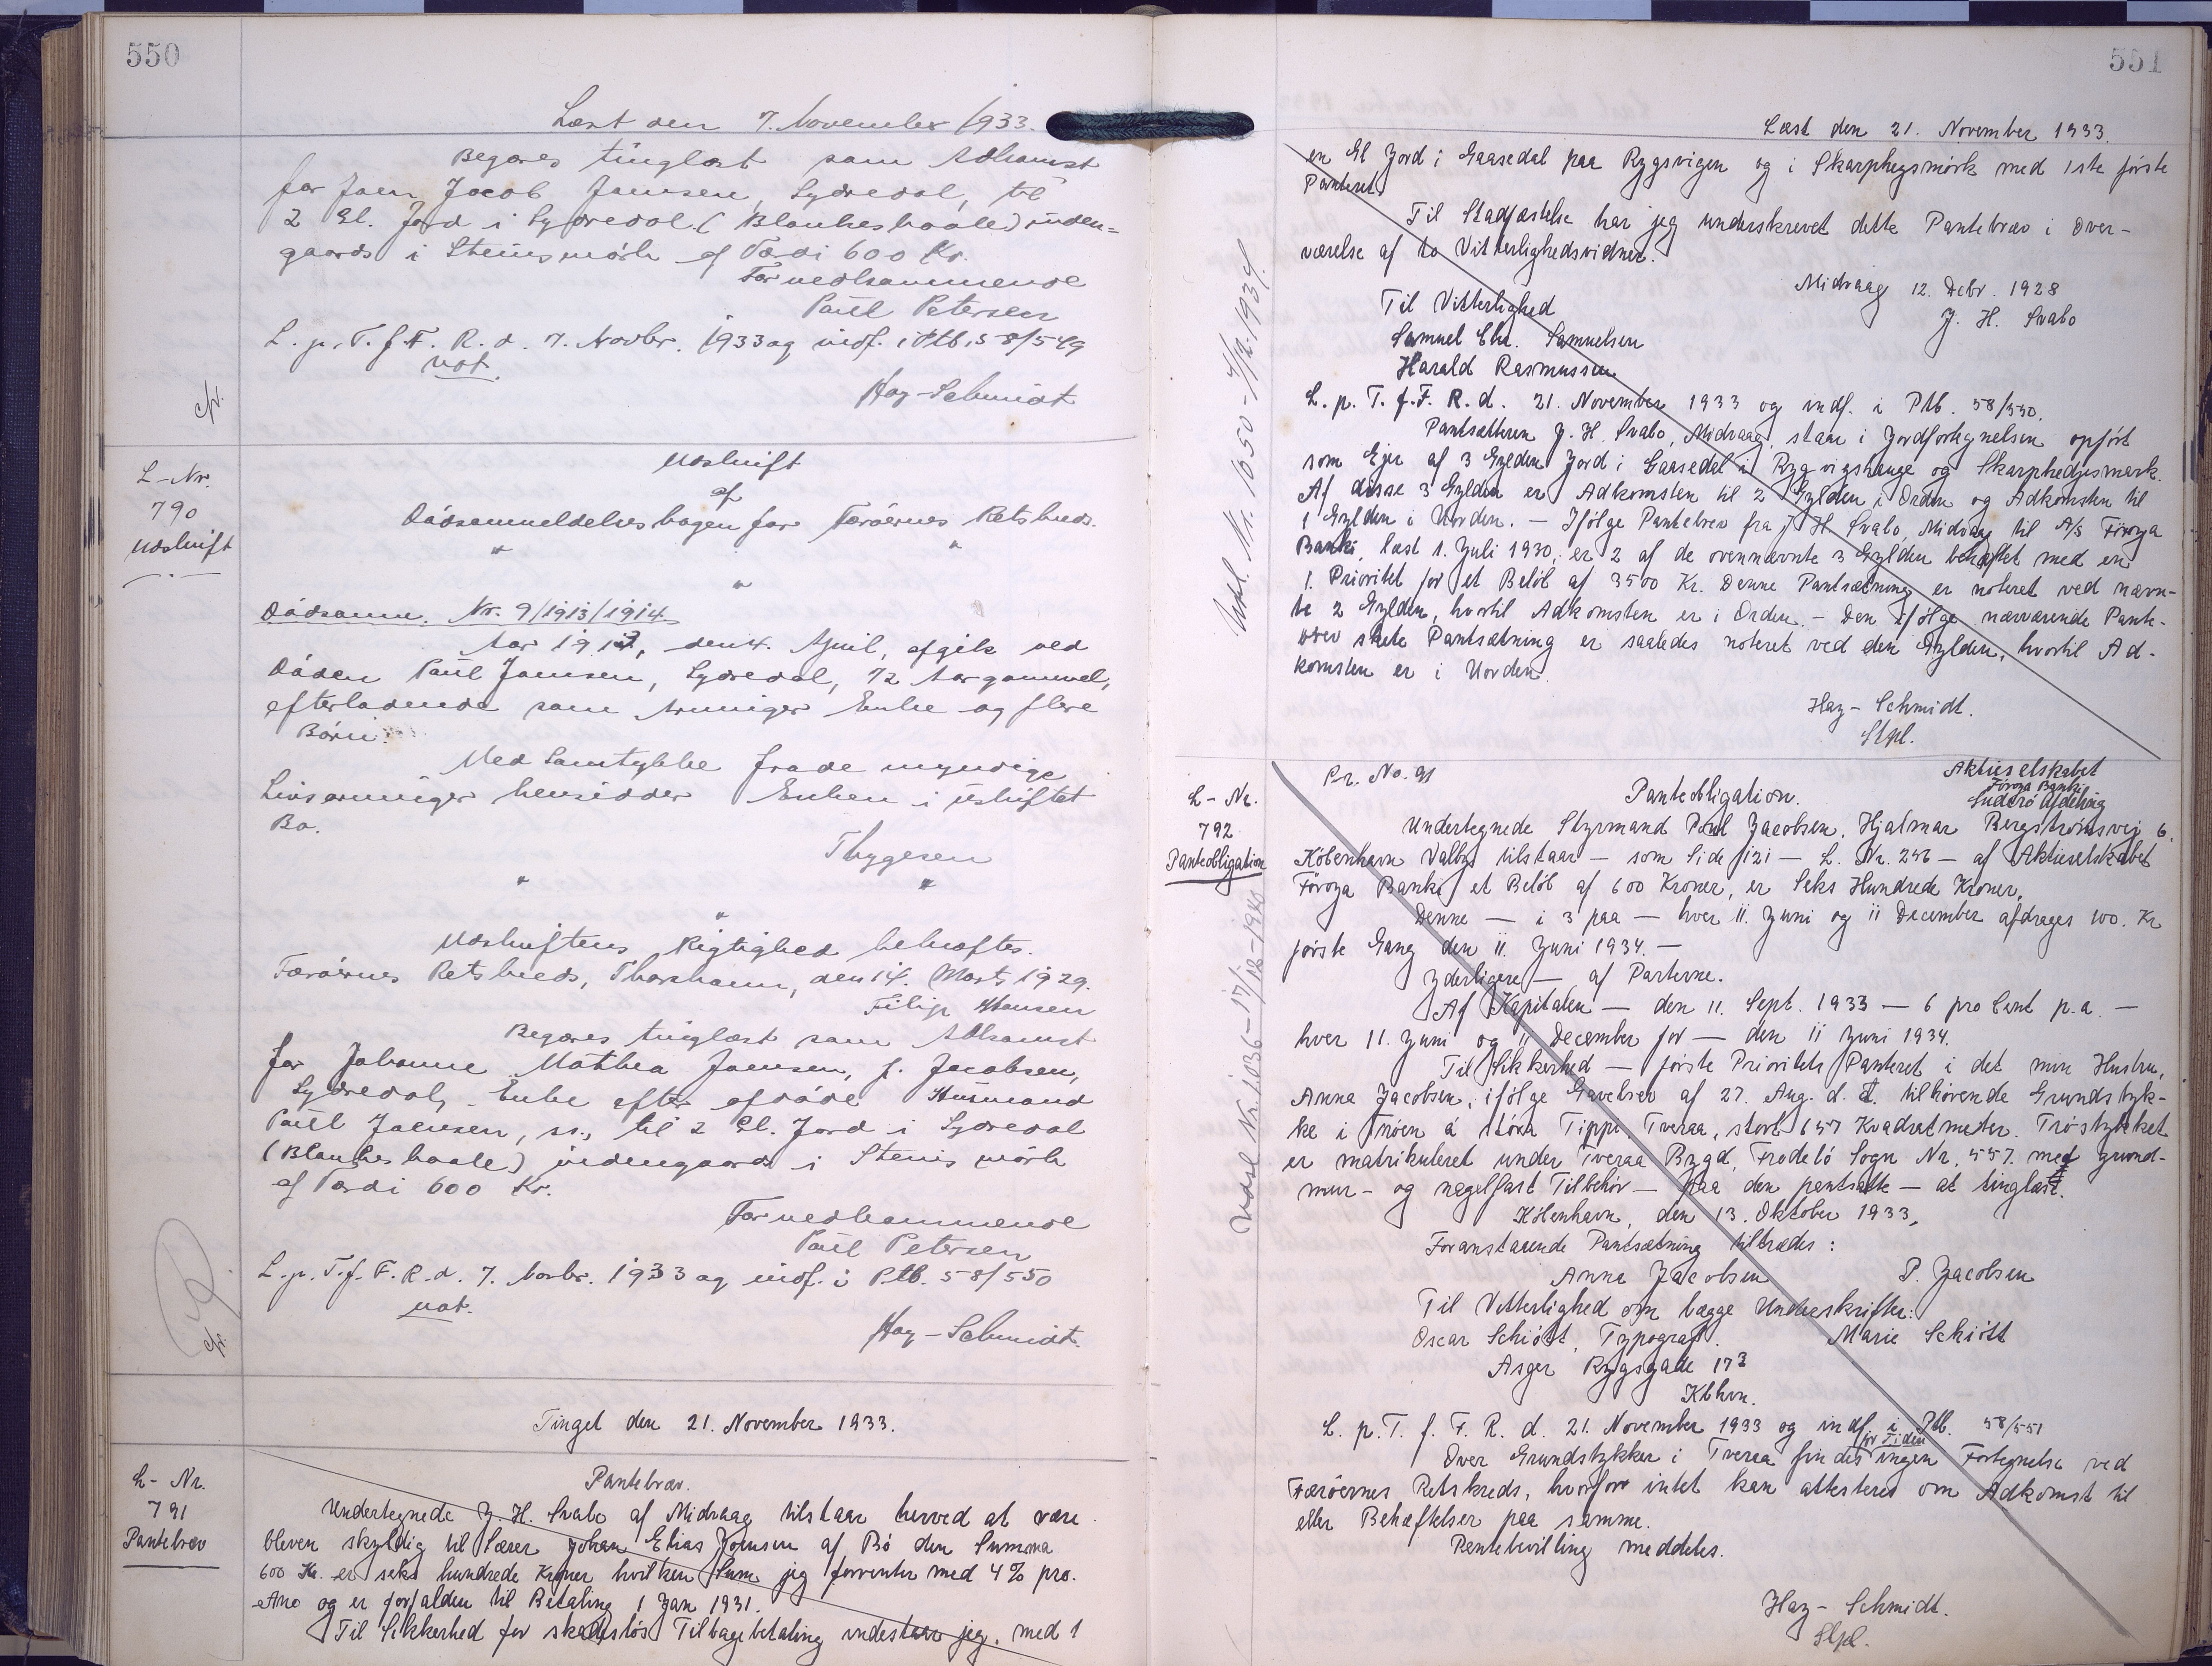 550
Læst den 7. November 1933.
Begæres tinglæst som Adkomst
for Joen Jacob Joensen, Sydredal, til
2 Gl. Jord i Sydredal (Blankeskaale) inden-
gaards i Steinsmørk af Værdi 600 Kr.
For vedkommende
Poul Petersen
L. p. T. f. F. R. d. 7. Novbr. 1933 og indf. i Ptb. 58/549
not.
Hay-Schmidt
cfr.
L-Nr.
790
Udskrift
Udskrift
af
Dødsanmeldelsesbogen for Færøernes Retskreds.
" "
"
Dødsanm. Nr. 9/1913/1914
Aar 1913, den 4. April, afgik ved
Døden Poul Joensen, Sydredal, 72 Aar gammel,
efterladende som Arvinger Enke og flere
Børn.
Med Samtykke fra de myndige
Livsarvinger hensidder Enken i uskiftet
Bo.
Thygesen
" "
"
Udskriftens Rigtighed bekræftes.
Færøernes Retskreds, Thorshavn, den 14. Marts 1929.
Filip Hansen
Begæres tinglæst som Adkomst
for Johanne Mathea Joensen, f. Jacobsen,
Sydredal, Enke efter afdøde Husmand
Poul Joensen, ss., til 2 Gl. Jord i Sydredal
(Blankeskaale) indengaards i Steinsmørk
af Værdi 600 Kr.
For vedkommende
Poul Petersen
L. p. T. f. F. R. d. 7. Novbr. 1933 og indf. i Ptb. 58/550
not.
Hay-Schmidt.
cfr.
Tinget den 21. November 1933.
L-Nr.
791
Pantebrev
Pantebrev.
Undertegnede J. H. Svabo af Midvaag tilstaar herved at være
bleven skyldig til Lærer Johan Elias Joensen af Bø den Summa
600 Kr. er seks hundrede Kroner hvilken Sum jeg forrenter med 4% pro.
Ano og er forfalden til Betaling 1 Jan 1931.
Til Sikkerhed for skadesløs Tilbagebetaling indestaar jeg, med 1
551
Læst den 21. November 1933.
en Gl Jord i Gaasedal paa Rygsvigen og i Skarphegsmørk med 1ste første
Panteret.
Til Stadfæstelse har jeg underskrevet dette Pantebrev i Over-
værelse af to Vitterlighedsvidner.
Midvaag 12. Debr. 1928
J. H. Svabo
Til Vitterlighed
Samuel Chr. Samuelsen
Harald Rasmussen
L. p. T. f. F. R. d. 21. November 1933 og indf. i Ptb. 58/550.
Pantsætteren J. H. Svabo, Midvaag, staar i Jordfortegnelsen opført
som Ejer af 3 Gylden Jord i Gaasedal i Rygvigshauge og Skarphedjesmørk.
Af disse 3 Gylden er Adkomsten til 2 Gylden i Orden og Adkomsten til
1 Gylden i Uorden. — Ifølge Pantebrev fra J. H. Svabo, Midvaag til A/S Føroya
Banki, læst 1. Juli 1930, er 2 af de ovennævnte 3 Gylden behæftet med en
1. Prioritet for et Beløb af 3500 Kr. Denne Pantsætning er noteret ved nævn-
te 2 Gylden, hvortil Adkomsten er i Orden. — Den ifølge nærværende Pante-
brev skete Pantsætning er saaledes noteret ved den Gylden, hvortil Ad-
komsten er i Uorden.
Hay-Schmidt.
Stpl.
Udsl. Nr. 1050 - 4/12.1934.
L-Nr.
792
Panteobligation
Pr. No. 91
Panteobligation.
Aktieselskabet
Føroya Banki
Suderø Afdeling
Undertegnede Styrmand Poul Jacobsen, Hjalmar Bergstrømsvej 6.
København Valby tilstaar — som Side 121 — L. Nr. 246 — af Aktieselskabet
Føroya Banki et Beløb af 600 Kroner, er Seks Hundrede Kroner,
Denne — i 3 paa — hver 11. Juni og 11 December afdrages 100. Kr
første Gang den 11. Juni 1934. —
Yderligere — af Parterne.
Af Kapitalen — den 11. Sept. 1933 — 6 pro Cent p.a. —
hver 11. Juni og 11 December for — den 11 Juni 1934.
Til Sikkerhed — første Prioritets Panteret i det min Hustru,
Anna Jacobsen, ifølge Gavebrev af 27. Aug. d. A. tilhørende Grundstyk-
ke i Trøen á stóra Tippi, Tveraa, stort 657 Kvadratmeter. Trøstykket
er matrikuleret under Tveraa Bygd, Frodebø Sogn Nr. 557. med grund-
mur- og nagelfast Tilbehør — paa den pantsatte — at tinglæst.
København, den 13. Oktober 1933,
Foranstaaende Pantsætning tiltrædes:
Anna Jacobsen P. Jacobsen
Til Vitterlighed om begge Underskrifter:
Oscar Schiøtt, Typograf. Marie Schiøtt
Asger Rygsgade 17³
Kbhvn.
L. p. T. f. F. R. d. 21. November 1933 og indf. i Ptb. 58/551
Over Grundstykker i Tveraa findes for Tiden ingen Fortegnelse ved
Færøernes Retskreds, hvorfor intet kan attesteres om Adkomst til
eller Behæftelser paa samme.
Rentebevilling meddeles.
Hay-Schmidt.
Stpl.
Udsl. Nr. 1036 - 17/12-1940